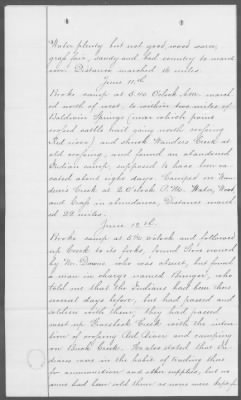 Water plenty but not good, wood scarce,
grass fair, sandy and bad country to march
over. Distance marched 16 miles.
June 11th
Broke camp at 5.40 O'clock A.M. march
ed north of west, to within two miles of
Baldwin Springs (near which point
crossed cattle trail going north crossing
Red river) and struck Wanders Creek at
old crossing, and found an abandoned
Indian camp, supposed to have been va
cated about eight days. Camped on Wan
ders Creek at 2 O'clock P.M. Water, Wood
and Grass in abundance, Distance march
ed 22 miles.
June 12th
Broke camp at 5 o'clock and followed
up Creek to its forks, found Store owned
by Mr. who was absent, but found
a man in charge named who
told me that the Indians had been there
several days before, but had passed and
addern with them; they had passed
west up Creek with the inten
tion of crossing Red River and camping
on Buck Creek. He also stated that In
dians were in the habit of trading there
for ammunition and other supplies, but no
arms had been sold them as none were kept for